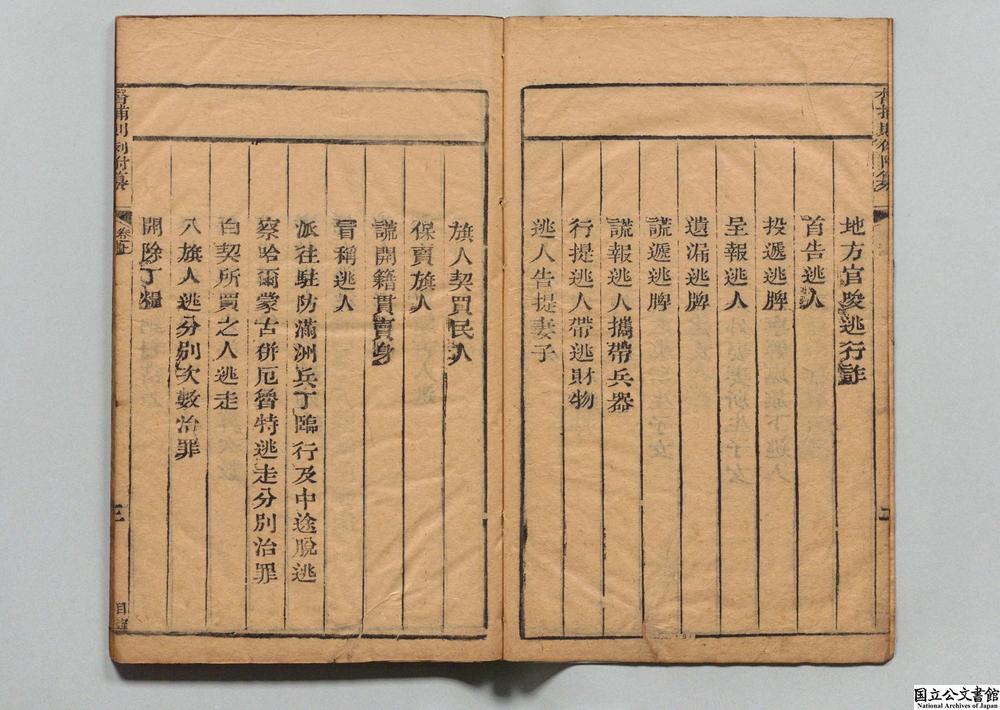 地方官獲逃行詳
首告逃人
投遞逃牌
呈報逃人
遺漏逃牌
謊遞逃牌
謊報逃人攜帶兵器
行提逃人帶逃財物
逃人告提妻子
旗人契買民人
保賣旗人
謊開籍貫賣身
冒稱逃人
派往駐防滿洲兵丁臨行及中途脫逃
察哈爾蒙古併厄魯特逃走分別治罪
白契所買之人逃走
八旗人逃分別次數治罪
開除丁糧
督捕則例附纂
卷上
三
目錄
国立公文書館
National Archives of Japan